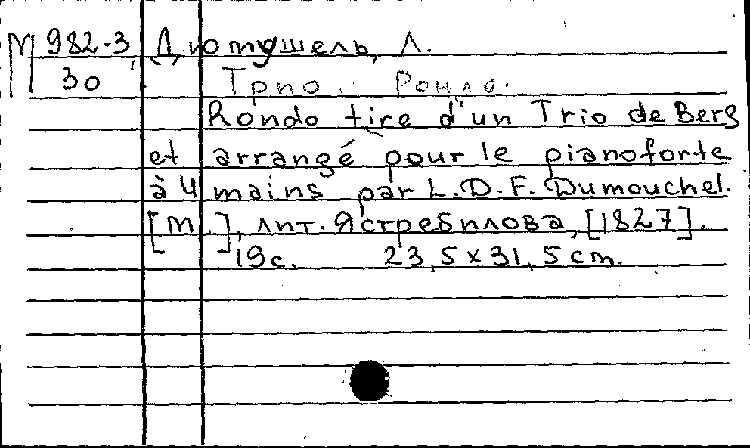 М 982-3 Дюмушель, Л.
30 Трио. Рондо.
Rondo tire d'un Trio de Berg
et arrangé pour le pianoforte
à 4 mains par L.D.F. Dumouchel.
[М.], лит. Ястребилова, [1827].
19с. 23,5 x 31,5 cm.